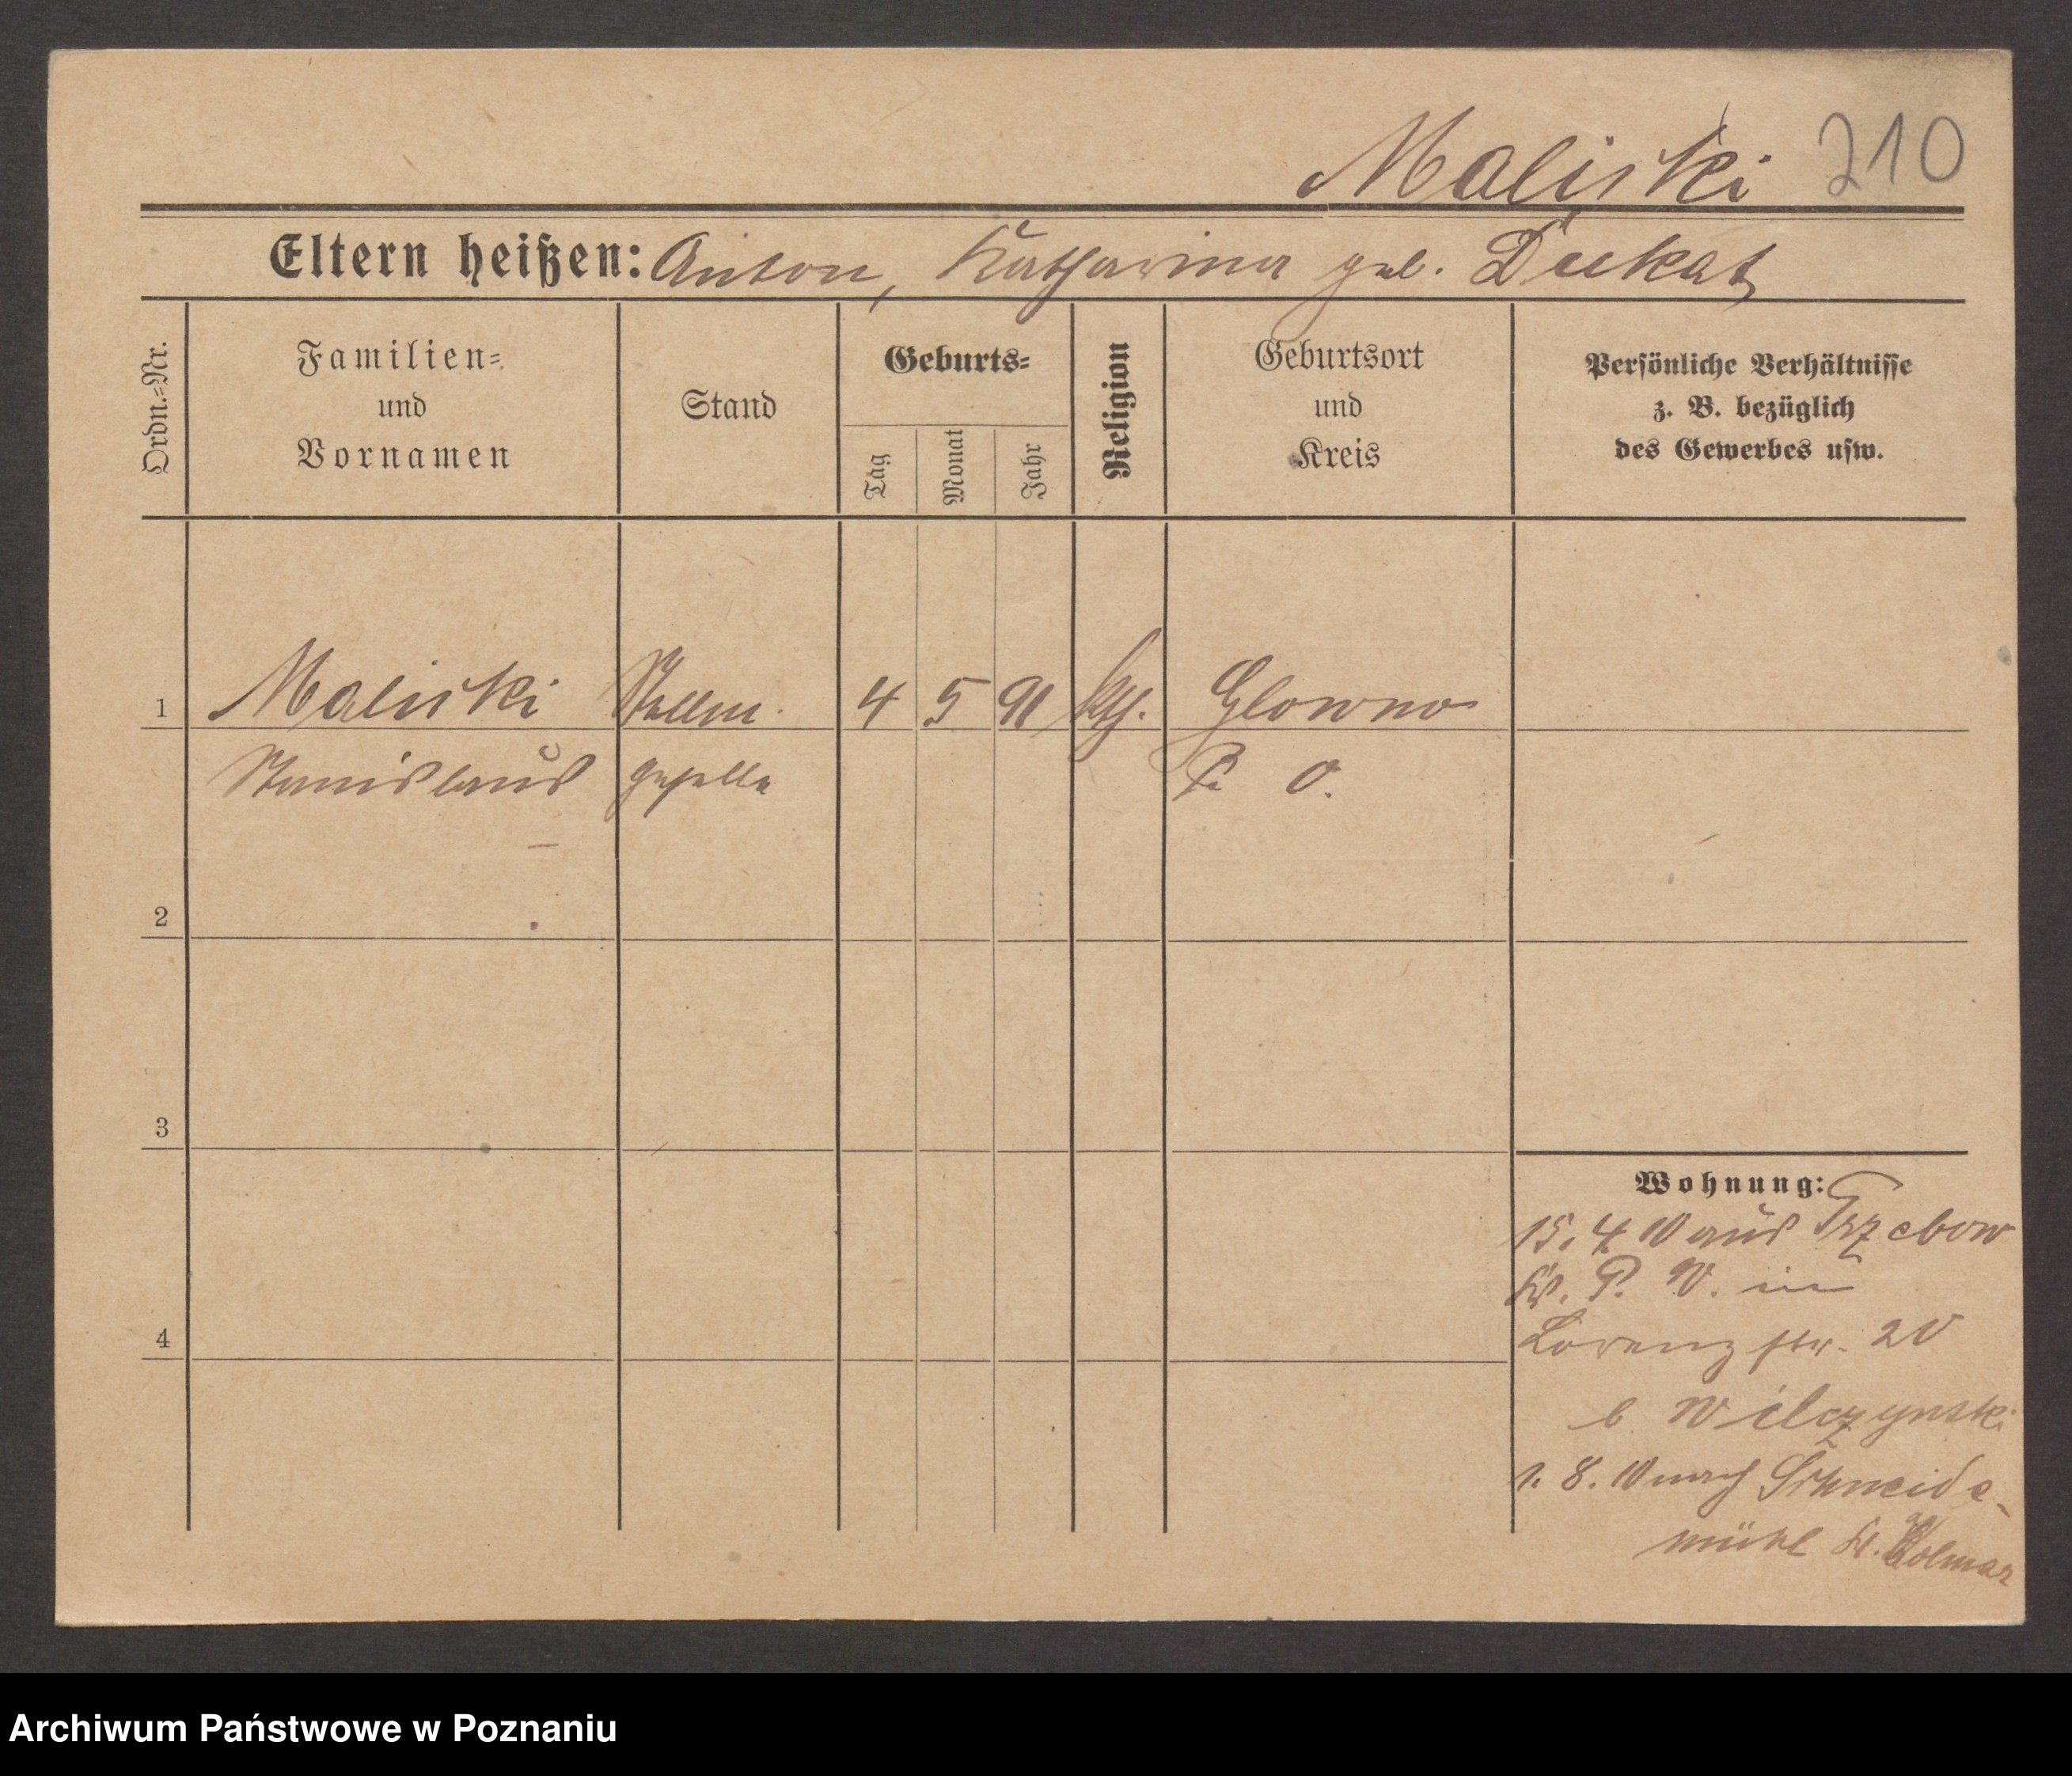 Maliski 210
Eltern heißen: Anton, Katharina geb. Dukat
Ordn.=Nr.
Familien=
und
Vornamen
Stand
Geburts=
Tag
Monat
Jahr
Religion
Geburtsort
und
Kreis
Persönliche Verhältnisse
z. B. bezüglich
des Gewerbes usw.
1 Maliski Stellm. 4 5 91 kth. Glowno
Stanislaus geselle P. O.
2
3
4
Wohnung:
15. 4 10 aus Trzebow
Kr. P. W. in
Lorenzstr. 20
b Wilczynski
1. 8. 10 nach Schneide-
mühl Kr. Kolmar
Archiwum Państwowe w Poznaniu